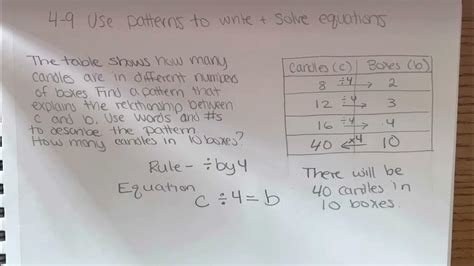 4-9 Use patterns to write + solve equations
The table shows how many
candles are in different numbers
of boxes. Find a pattern that
explains the relationship between
c and b. Use words and #s
to describe the pattern.
How many candles in 10 boxes?
Candles (c) Boxes (b)
8 ÷4→ 2
12 ÷4→ 3
16 ÷4→ 4
40 ←×4 10
Rule - ÷by 4
Equation
c ÷ 4 = b
There will be
40 candles in
10 boxes.